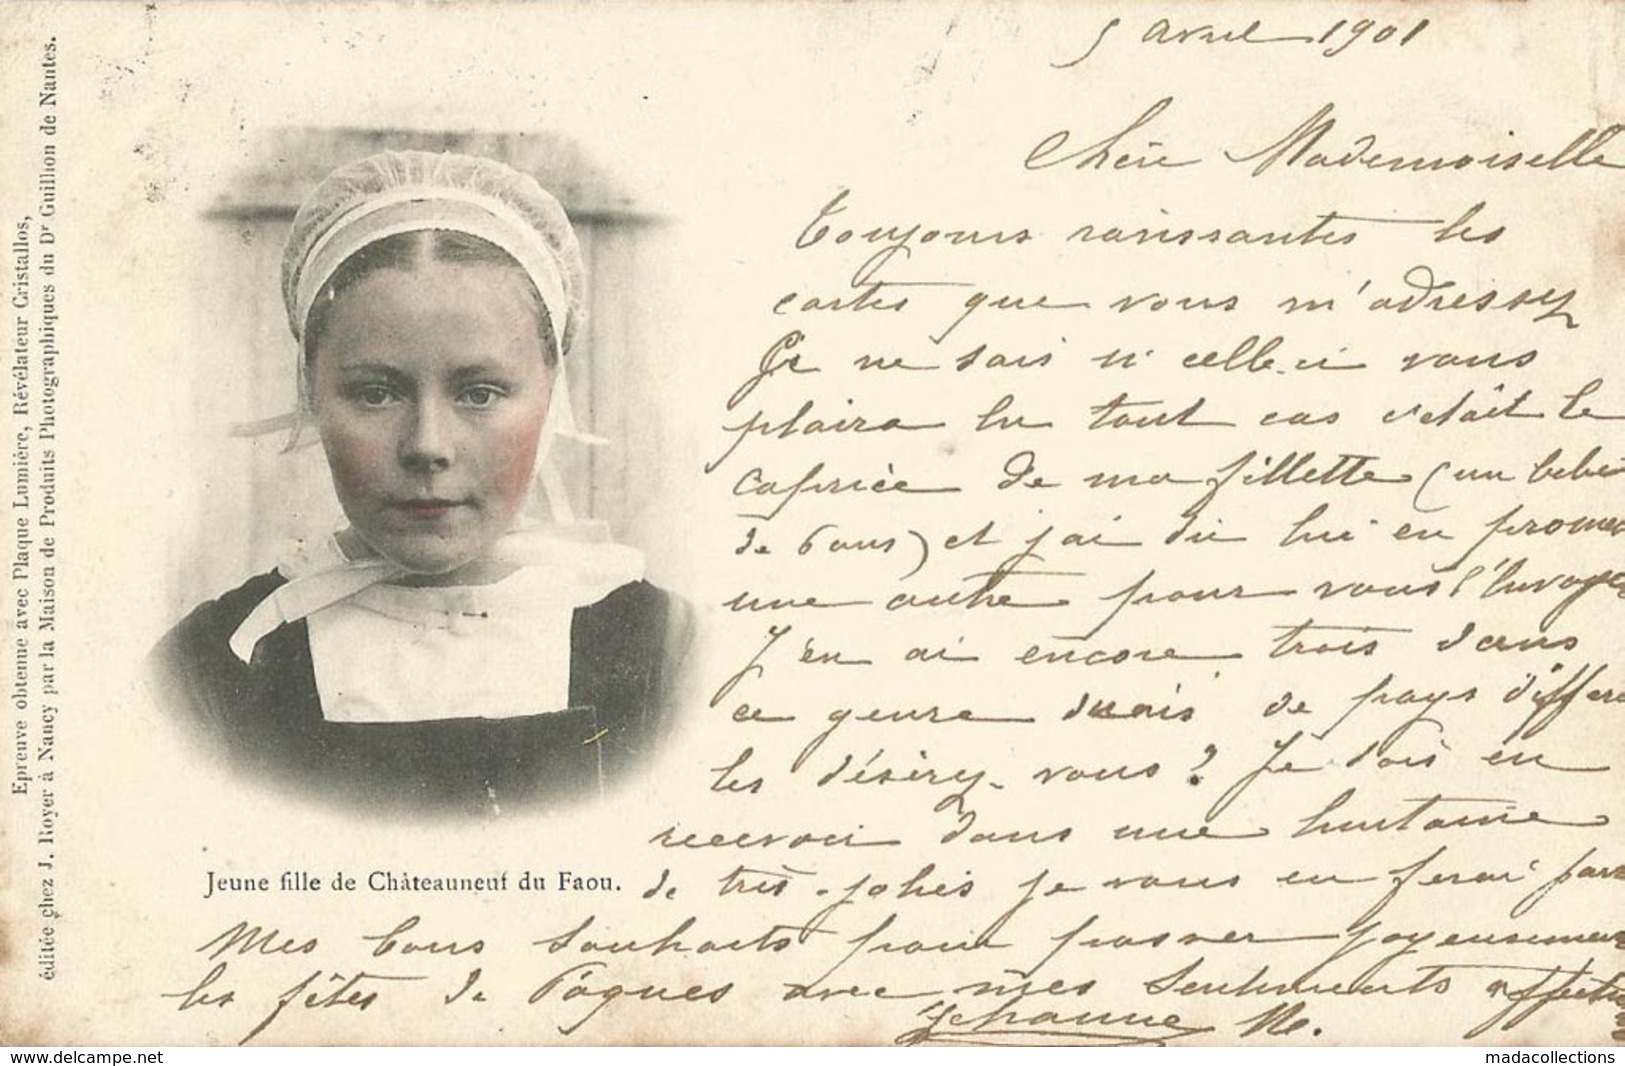 5 avril 1901
Chère Mademoiselle
Toujours ravissantes les
cartes que vous m'adressez
Je ne sais si celle-ci vous
plaira en tout cas c'était le
caprice de ma fillette (un bébé
de 6 ans) et j'ai dû lui en
une autre pour vous l'envoyer
J'en ai encore trois dans
ce genre mais de pays
les désirez-vous? Je dois en
recevoir dans une huitaine
de très-jolies je vous en ferai
Mes bons souhaits pour passer joyeusement
les fêtes de Pâques avec mes sentiments
Jehanne M.
Jeune fille de Châteauneuf du Faou.
Epreuve obtenue avec Plaque Lumière, Révélateur Cristallos,
éditée chez J. Royer à Nancy par la Maison de Produits Photographiques du Dr Guilhon de Nantes.
www.delcampe.net
madacollections